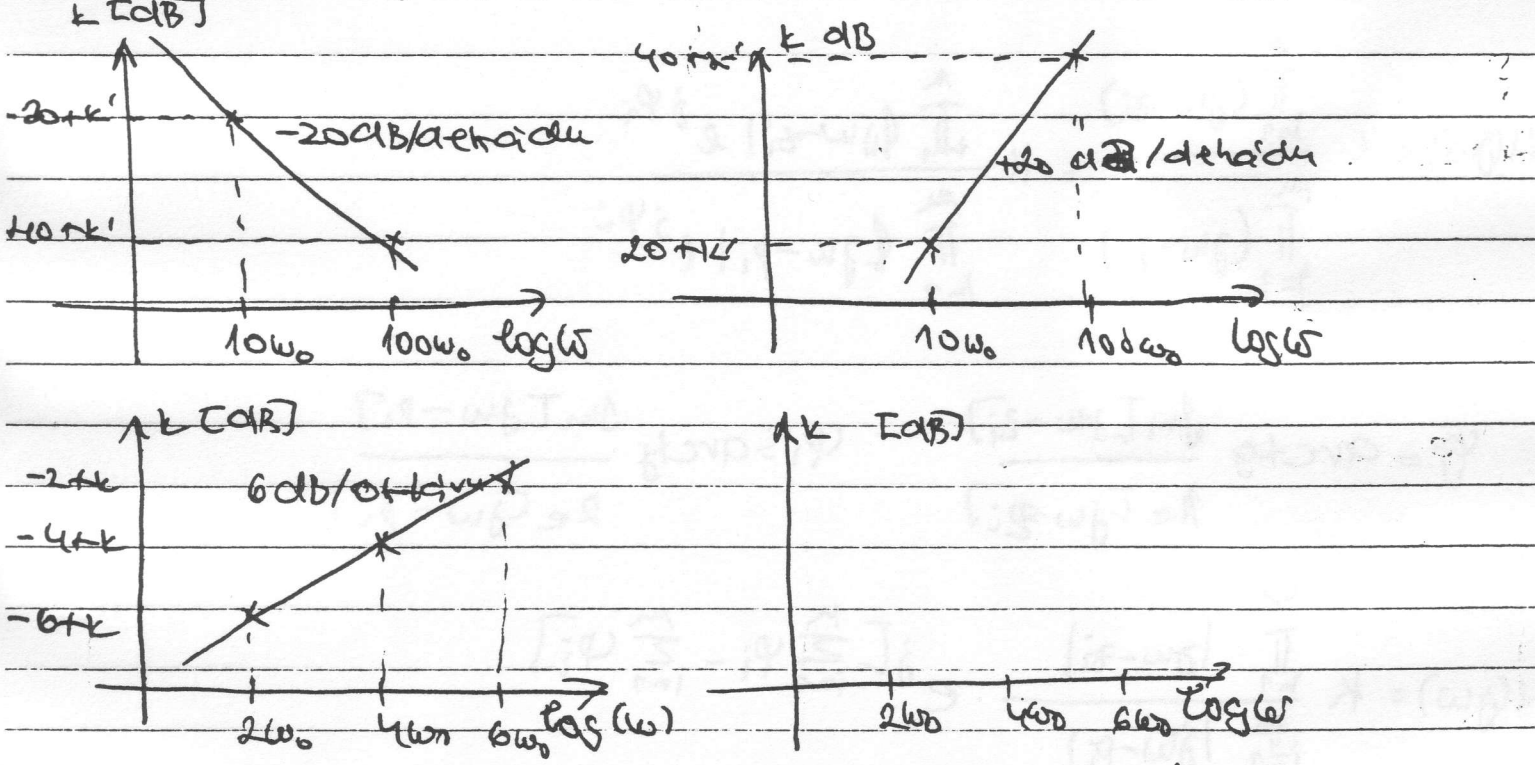 k [dB]
-20+k'
-20dB/dekádu
40+k'
10ω₀ 100ω₀ log ω
k dB
40+k'
+20 dB/dekádu
20+k'
10ω₀ 100ω₀ log ω
k [dB]
-2+k
6dB/oktávu
-4+k
-6+k
2ω₀ 4ω₀ 6ω₀ log(ω)
k [dB]
2ω₀ 4ω₀ 6ω₀ log ω